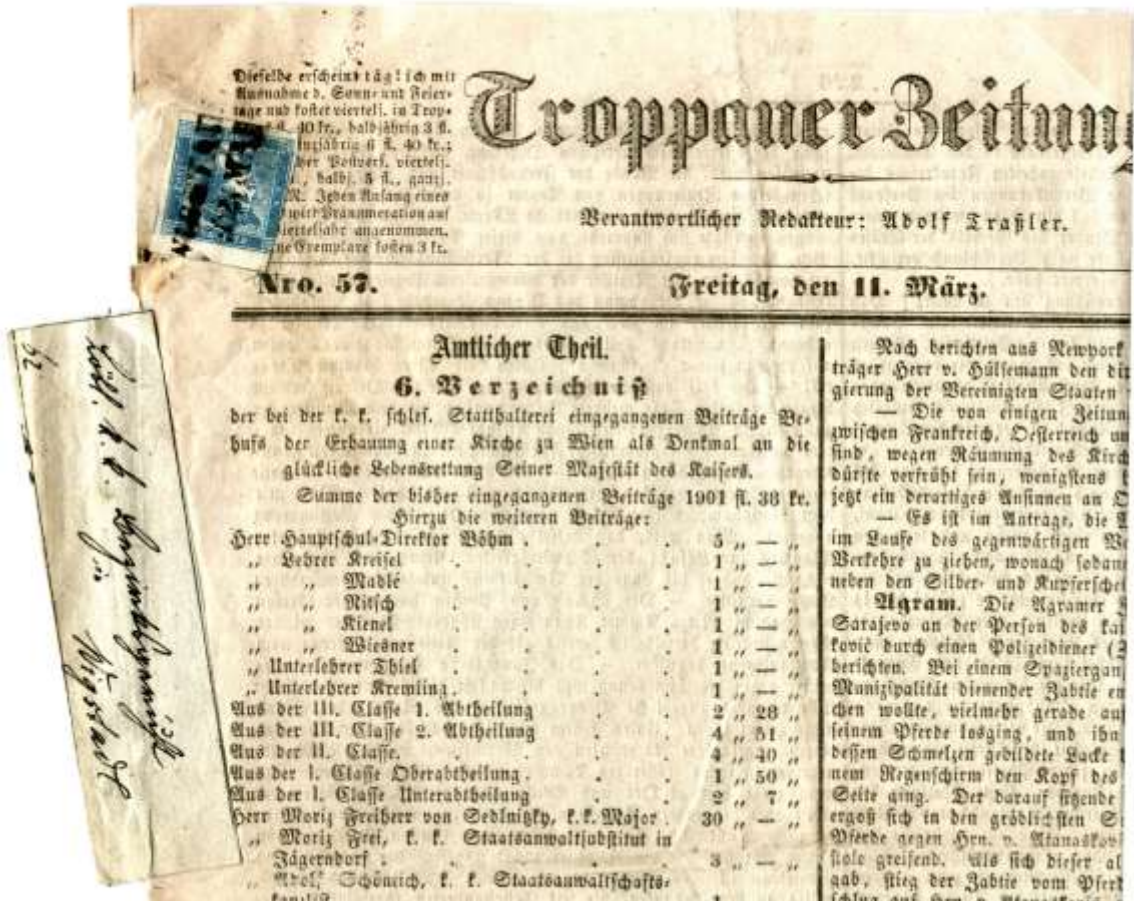 Dieselbe erscheint täglich mit
Ausnahme d. Sonn- und Feier-
tage und kostet viertelj. in Trop-
fl. 40 kr., halbjährig 3 fl.
6 fl. 40 kr.;
viertelj.
halbj. 5 fl., ganzj.
Jeden Anfang eines
wird Pränumeration auf
angenommen.
Exemplare kosten 3 kr.
Troppauer Zeitung
Verantwortlicher Redakteur: Adolf Traßler.
Nro. 57.
Freitag, den 11. März.
Löbl. k. k.
in Wigstadtl
52
Amtlicher Theil.
6. Verzeichniß
der bei der k. k. schles. Statthalterei eingegangenen Beiträge Be-
hufs der Erbauung einer Kirche zu Wien als Denkmal an die
glückliche Lebensrettung Seiner Majestät des Kaisers.
Summe der bisher eingegangenen Beiträge 1901 fl. 38 kr.
Hierzu die weiteren Beiträge:
Herr Hauptschul-Direktor Böhm . . . 5 „ — „
„ Lehrer Kreisel . . . . 1 „ — „
„ „ Madlé . . . . 1 „ — „
„ „ Nitsch . . . . 1 „ — „
„ „ Kienel . . . . 1 „ — „
„ „ Wiesner . . . . 1 „ — „
„ Unterlehrer Thiel . . . . 1 „ — „
„ Unterlehrer Kremling . . . . 1 „ — „
Aus der III. Classe 1. Abtheilung . . 2 „ 28 „
Aus der III. Classe 2. Abtheilung . . 4 „ 51 „
Aus der II. Classe. . . . 4 „ 40 „
Aus der I. Classe Oberabtheilung . . . 1 „ 50 „
Aus der I. Classe Unterabtheilung . . 2 „ 7 „
Herr Moriz Freiherr von Sedlnitzky, k. k. Major . 30 „ — „
„ Moriz Frei, k. k. Staatsanwaltsubstitut in
Jägerndorf . . . . . 3 „ — „
„ Adolf Schöneich, k. k. Staatsanwaltschafts-
Nach berichten aus Newyork
träger Herr v. Hülsemann den
gierung der Vereinigten Staaten
— Die von einigen
zwischen Frankreich, Oesterreich
sind, wegen Räumung des
dürfte verfrüht sein, wenigstens
jetzt ein derartiges Ansinnen an
— Es ist im Antrage, die
im Laufe des gegenwärtigen
Verkehre zu ziehen, wonach
neben den Silber- und
Agram. Die Agramer
Sarajevo an der Person des
ković durch einen Polizeidiener
berichten. Bei einem
Munizipalität dienender Zabtie
chen wollte, vielmehr gerade
seinem Pferde losging, und ihn
dessen Schmelzen gebildete Lacke
nem Regenschirm den Kopf des
Seite ging. Der darauf sitzende
ergoß sich in den gräblichsten
Pferde gegen Hrn. v.
stole greifend. Als sich dieser
gab, stieg der Zabtie vom